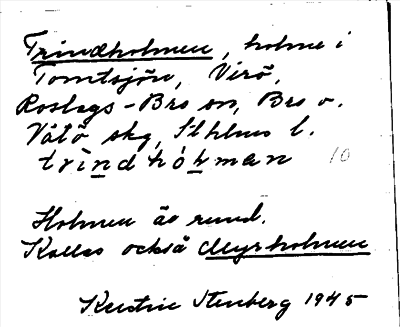 Trindholmen, holme i
Tomtsjön, Virö,
Roslags-Bro sn, Bro o.
Vätö skg, Sthlms l.
trìndhó̀ɫman 10
Holmen är rund.
Kallas också Myrholmen
Kerstin Stenberg 1945